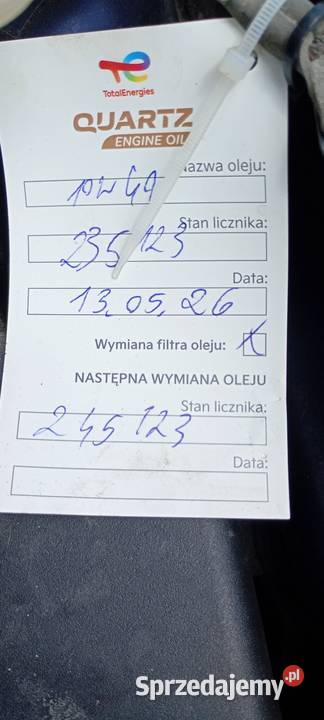 TotalEnergies
QUARTZ
ENGINE OIL
azwa oleju:
10W40
Stan licznika:
235123
Data:
13.05.26
Wymiana filtra oleju: X
NASTĘPNA WYMIANA OLEJU
Stan licznika:
245123
Data:
Sprzedajemy.pl